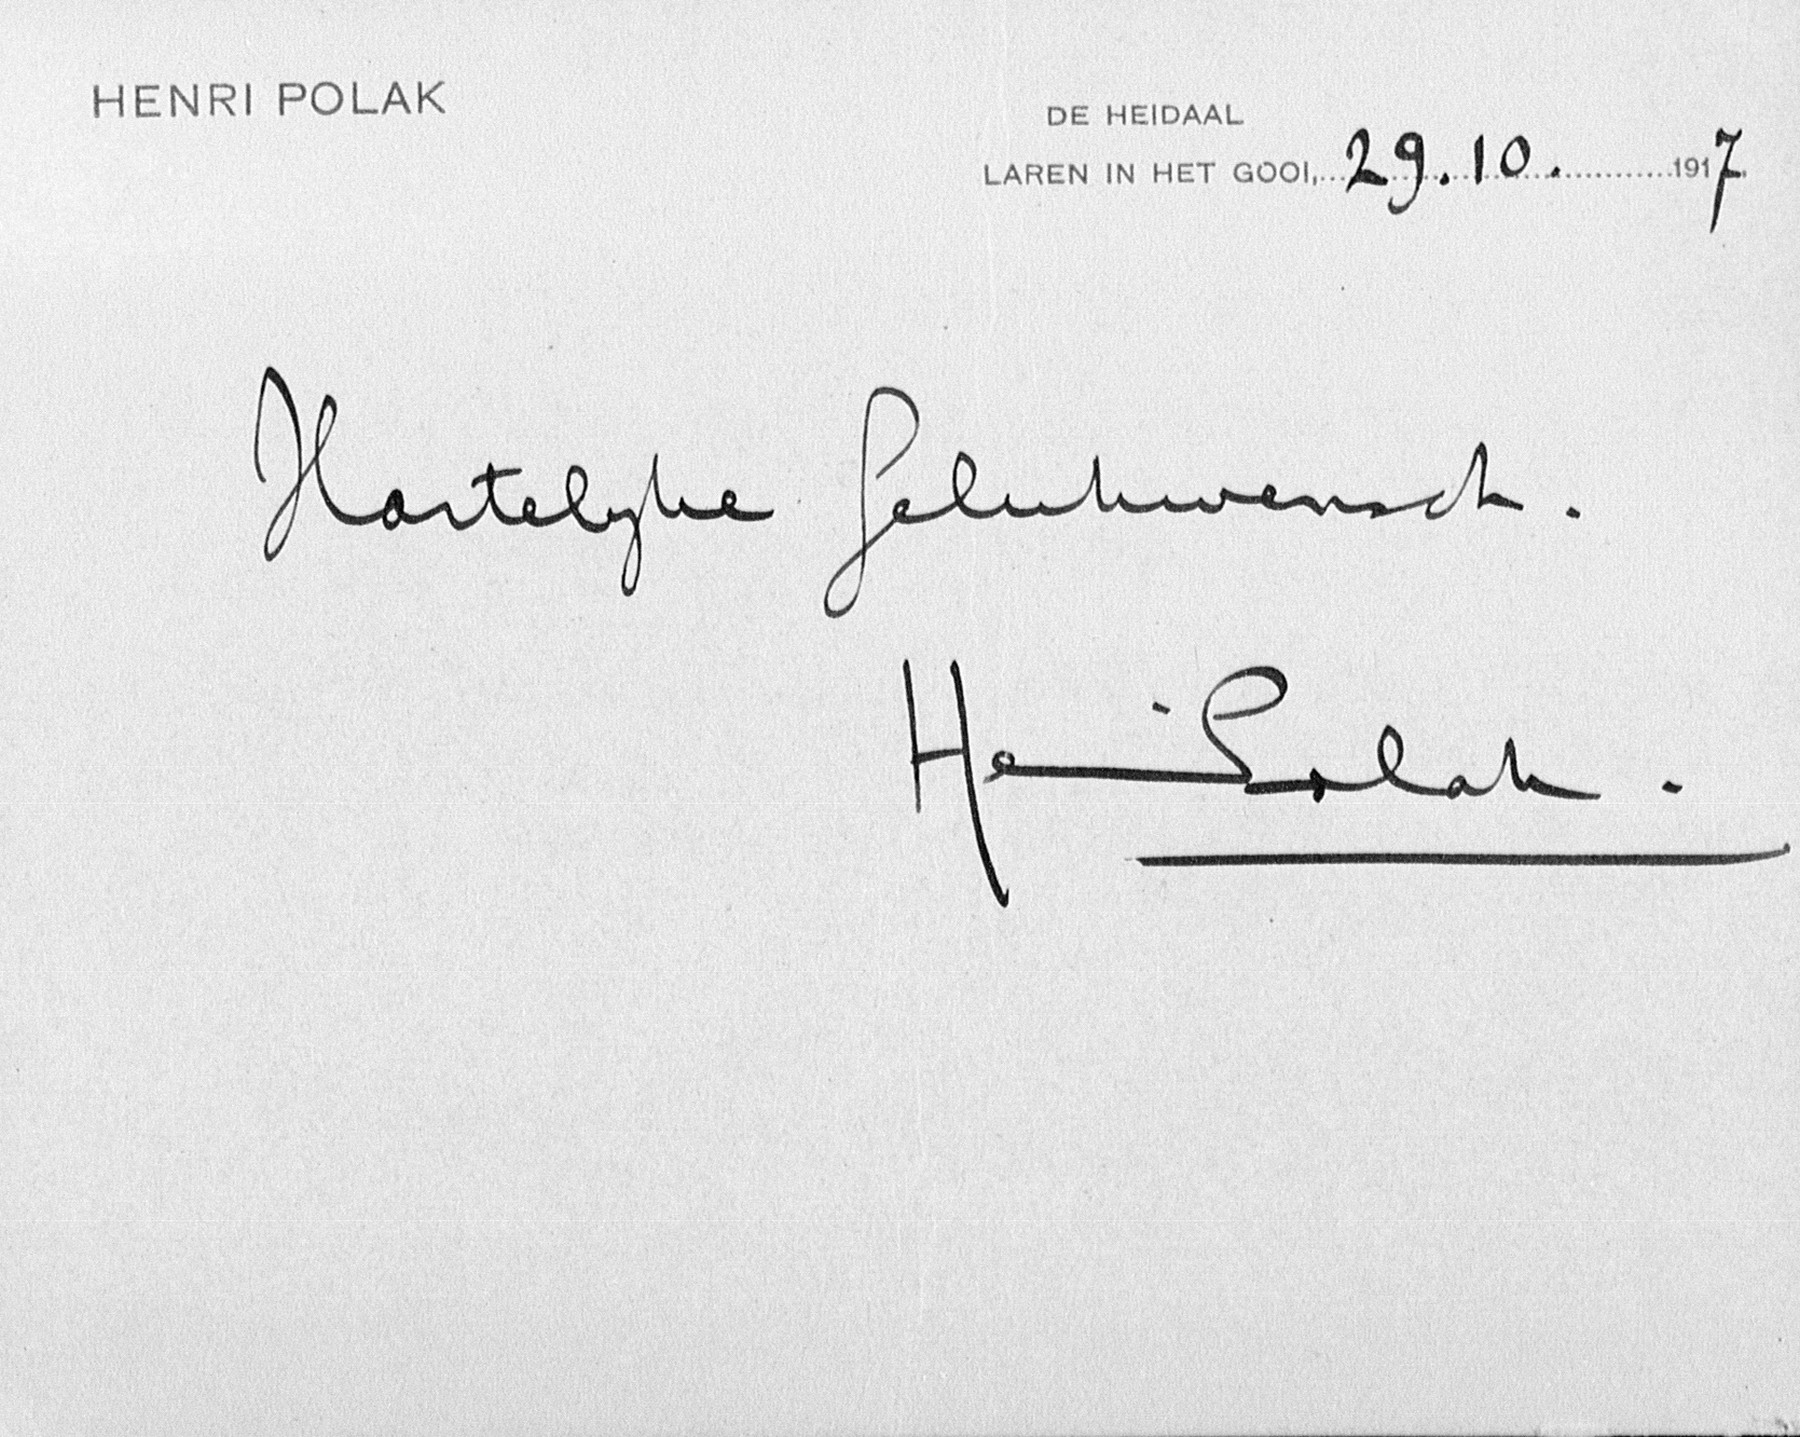 HENRI POLAK
DE HEIDAAL
LAREN IN HET GOOI, 29.10. 1917
Hartelyke Gelukwensch.
Henri Polak.